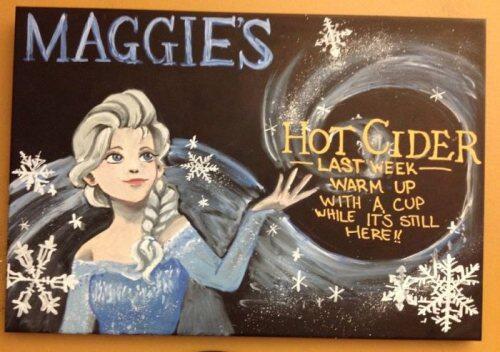 MAGGIE'S
HOT CIDER
LAST WEEK
WARM UP
WITH A CUP
WHILE IT'S STILL
HERE!!